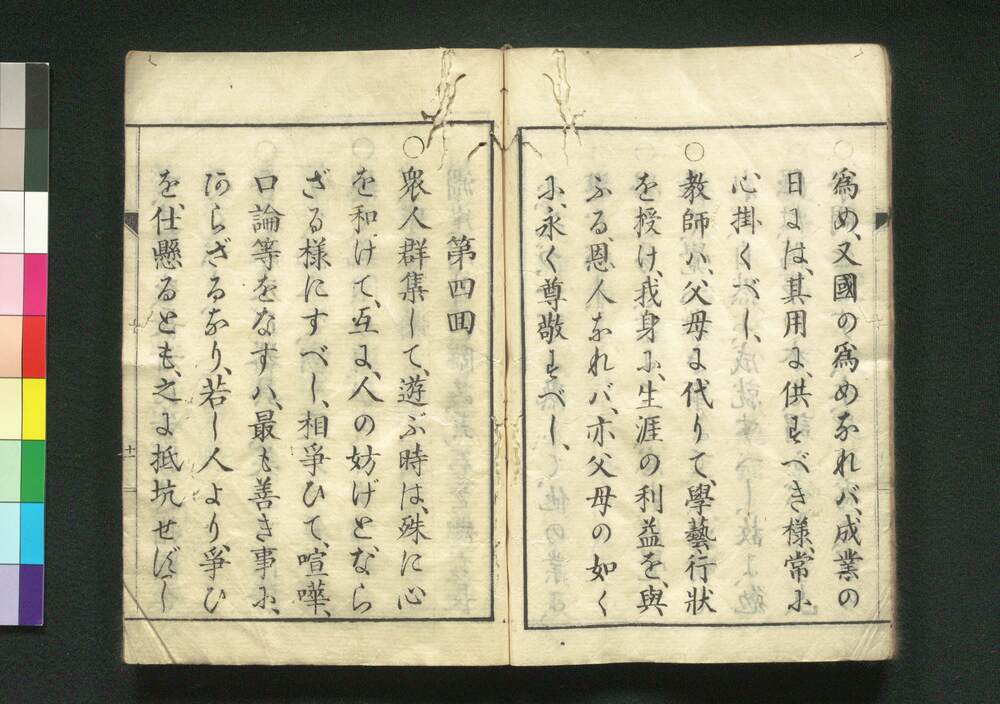 爲め、又國の爲めなれバ、成業の
日には、其用に、供すべき樣、常に
心掛くべし、
○教師ハ、父母に代りて、學藝行狀
を授け、我身に、生涯の利益を、與
ふる、恩人なれバ、亦父母の如く
に、永く尊敬すべし、
第四回
○衆人群集して、遊ぶ時は、殊に心
を和けて、互に、人の妨げとなら
ざる樣にすべし、相爭ひて、喧嘩、
口論等をなすハ、最も善き事に、
あらざるなり、若し人より、爭ひ
を、仕懸るとも、之に抵坑せずし
十一